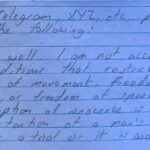 Telegram, XYZ, etc p
the following:
well. I am not acc
ditions that restr
of movement, freed
or freedom of spee
ption of innocence is
tention of a man's
a trial or it is aw